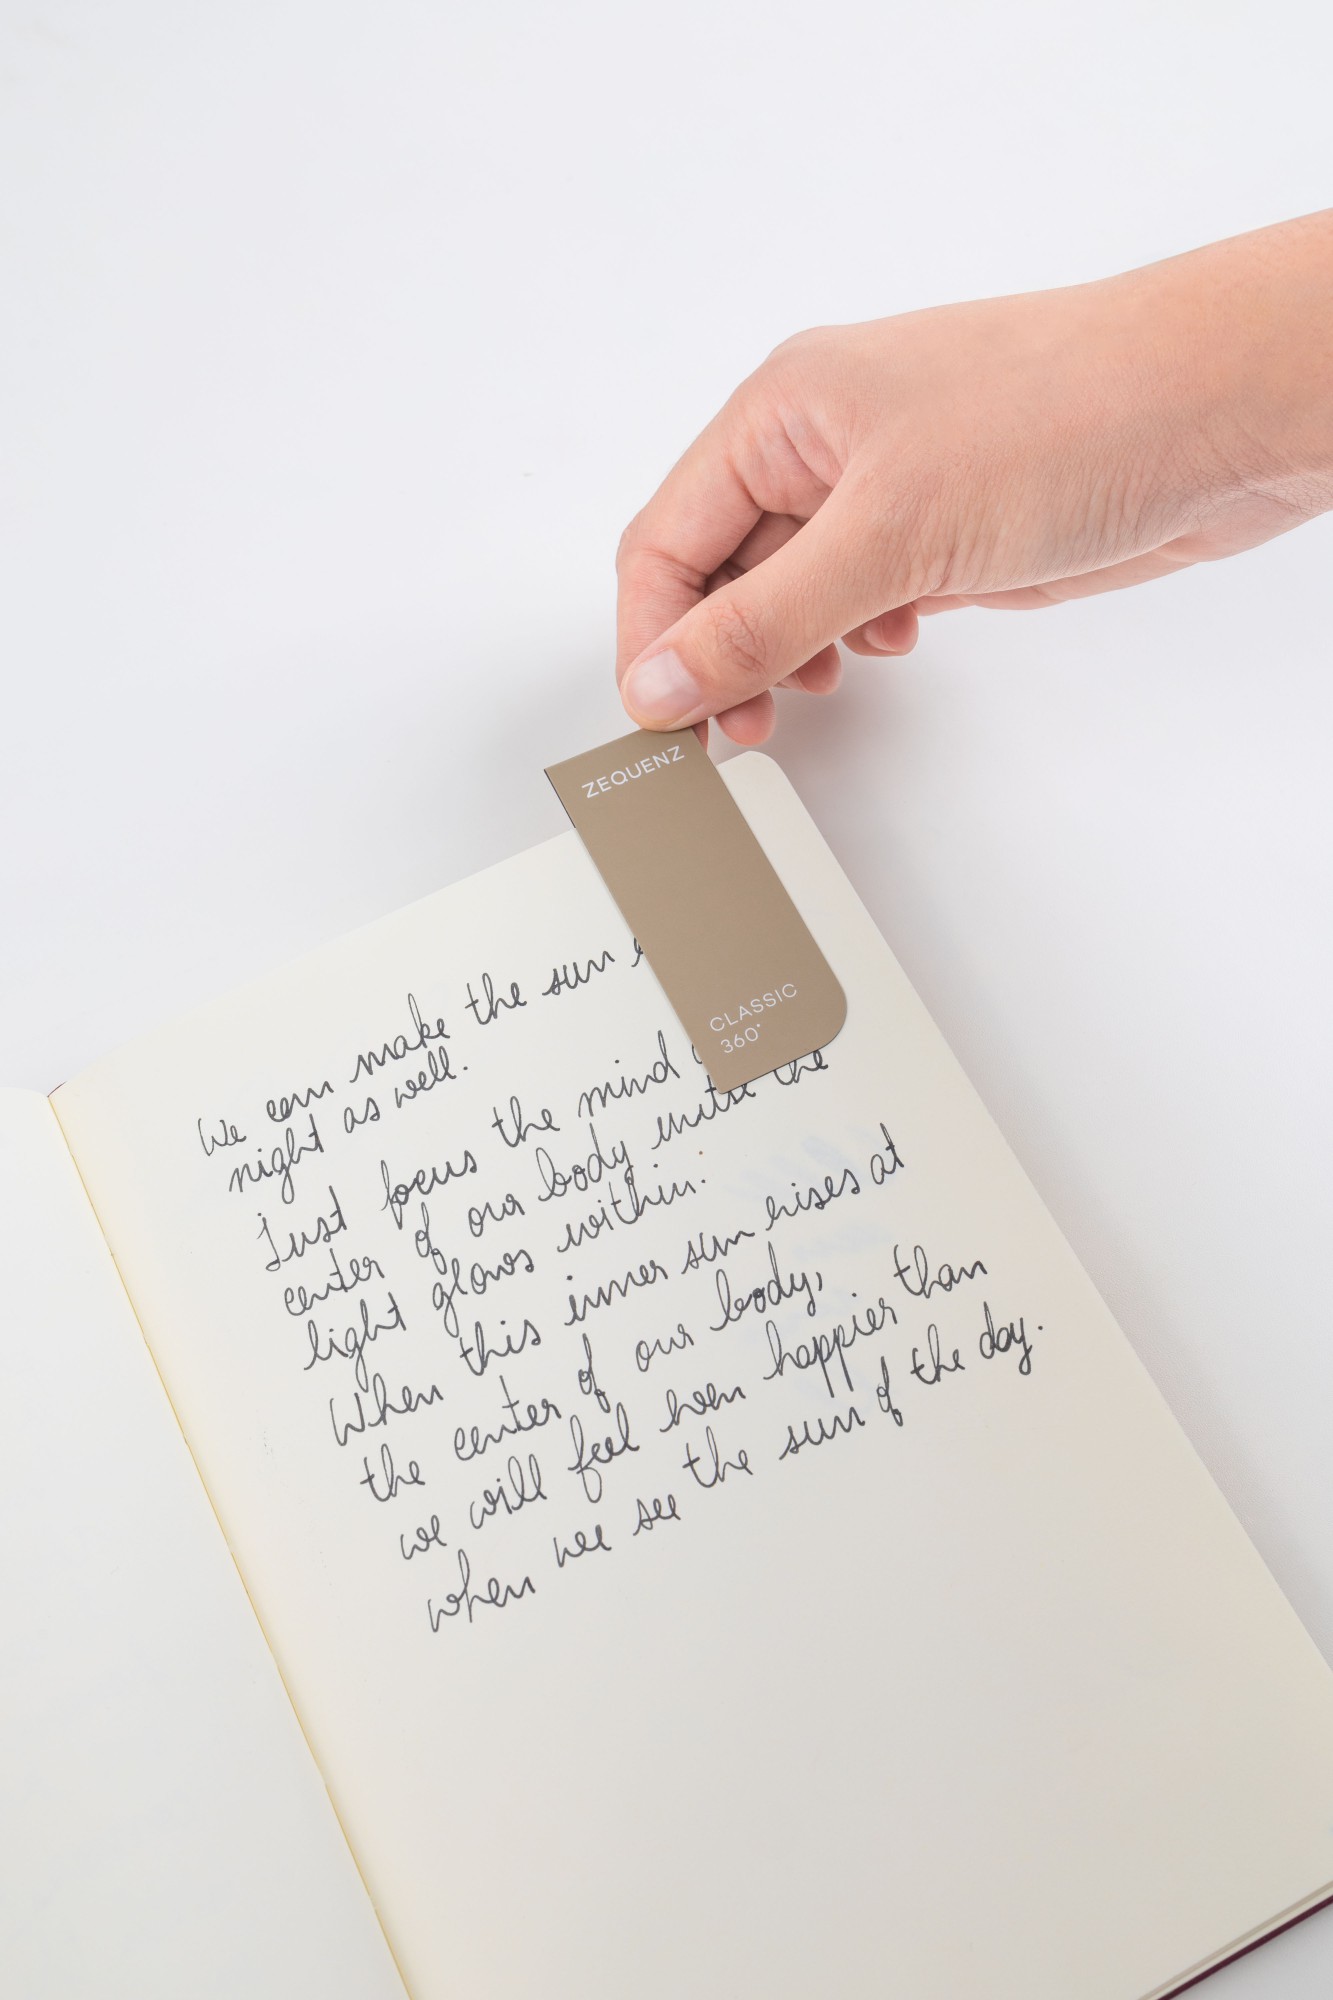 ZEQUENZ
CLASSIC
360°
We can make the sun
night as well.
Just focus the mind
center of our body until the
light glows within.
When this inner sun rises at
the center of our body,
we will feel even happier than
when we see the sun of the day.